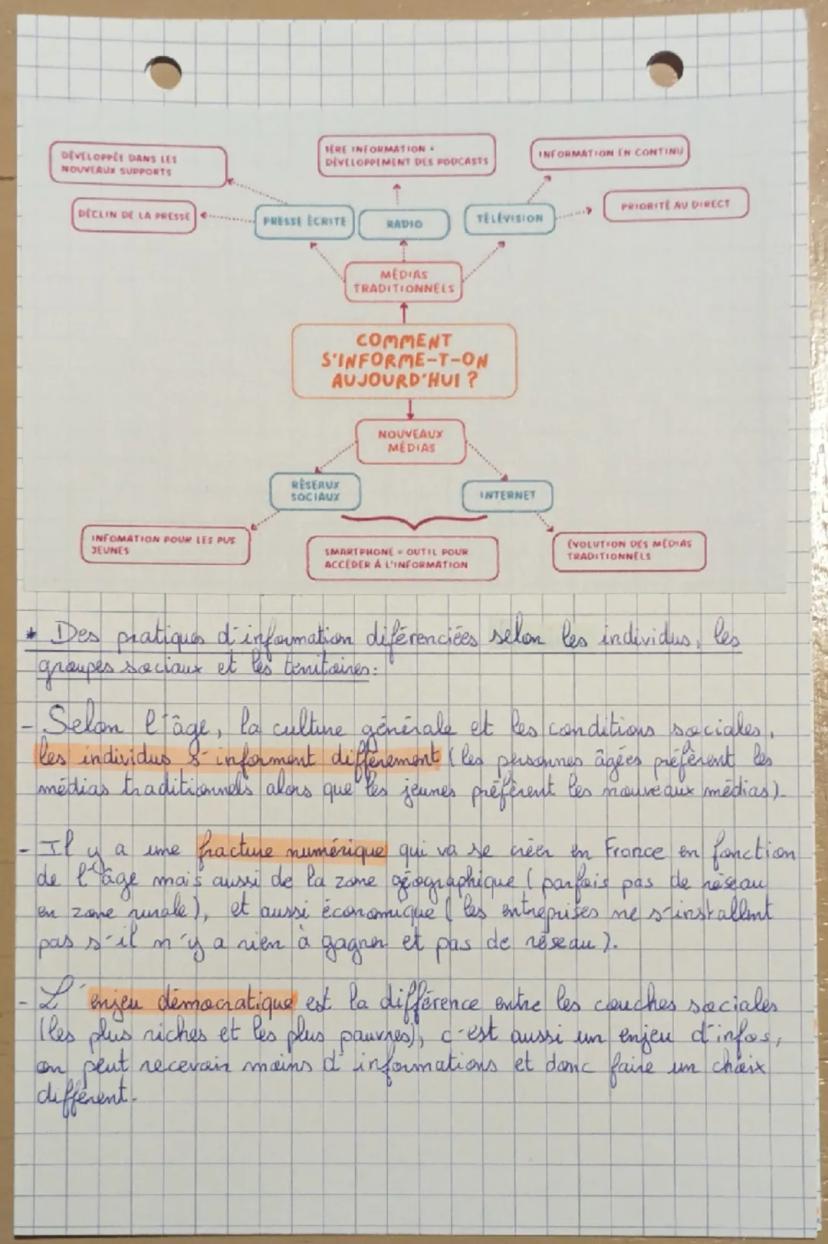 DÉVELOPPÉE DANS LES
NOUVEAUX SUPPORTS
1ÈRE INFORMATION +
DÉVELOPPEMENT DES PODCASTS
INFORMATION EN CONTINU
DÉCLIN DE LA PRESSE
PRESSE ÉCRITE
RADIO
TÉLÉVISION
PRIORITÉ AU DIRECT
MÉDIAS
TRADITIONNELS
COMMENT
S'INFORME-T-ON
AUJOURD'HUI ?
NOUVEAUX
MÉDIAS
RÉSEAUX
SOCIAUX
INTERNET
INFOMATION POUR LES PUS
JEUNES
SMARTPHONE = OUTIL POUR
ACCÉDER À L'INFORMATION
ÉVOLUTION DES MÉDIAS
TRADITIONNELS
* Des pratiques d'information diférenciées selon les individus, les
groupes sociaux et les territoires:
- Selon l'âge, la culture générale et les conditions sociales,
les individus s'informent différement (les personnes âgées préfèrent les
médias traditionnels alors que les jeunes préfèrent les nouveaux médias).
- Il y a une fracture numérique qui va se créer en France en fonction
de l'âge mais aussi de la zone géographique (parfois pas de réseau
en zone rurale), et aussi économique (les entreprises ne s'installent
pas s'il n'y a rien à gagner et pas de réseau).
- L'enjeu démocratique est la différence entre les couches sociales
(les plus riches et les plus pauvres), c'est aussi un enjeu d'infos,
on peut recevoir moins d'informations et donc faire un choix
différent.